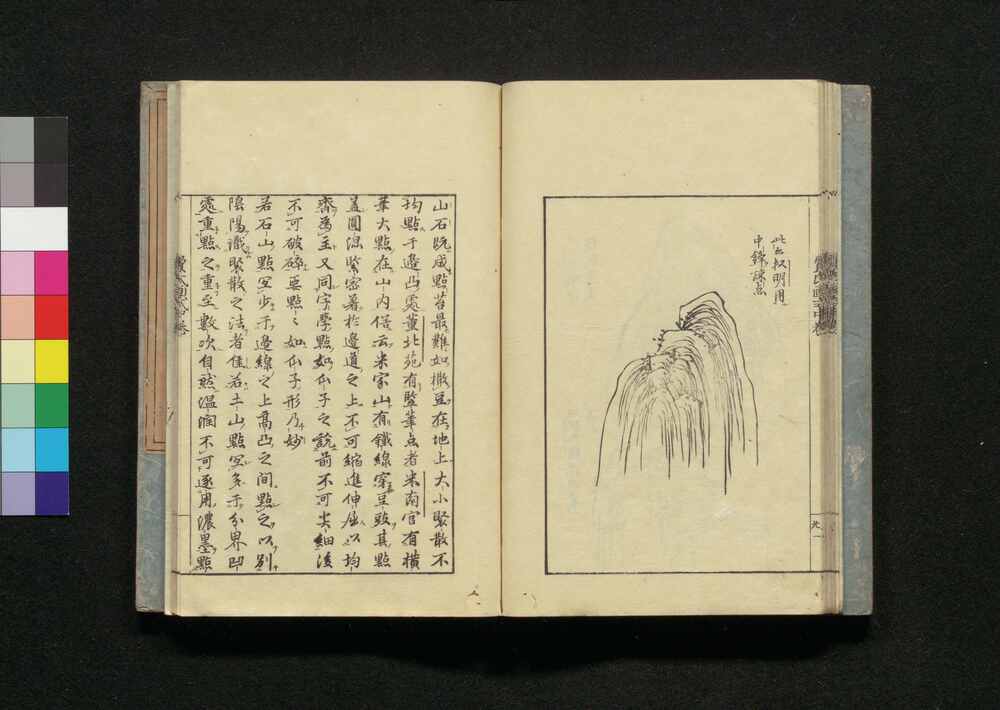 此亦叔明用
中鋒疎点
山石既成點苔最難如撒豆在地上大小聚散不
均點于邊凸處董北苑有竪筆点者米南官有橫
筆大點在山内俗云米家山有鐵線穿豆豉其點
葢圓渾緊密著於邊道之上不可縮進伸屈以均
齊為主又同字學點如瓜子之說前不可尖細後
不可破碎要點〻如瓜子形乃妙
若石山點宜少于邊線之上高凸之間點之以別
陰陽識聚散之法者佳若土山點宜多于分界凹
處重點之重至數次自然温潤不可逐用濃墨點